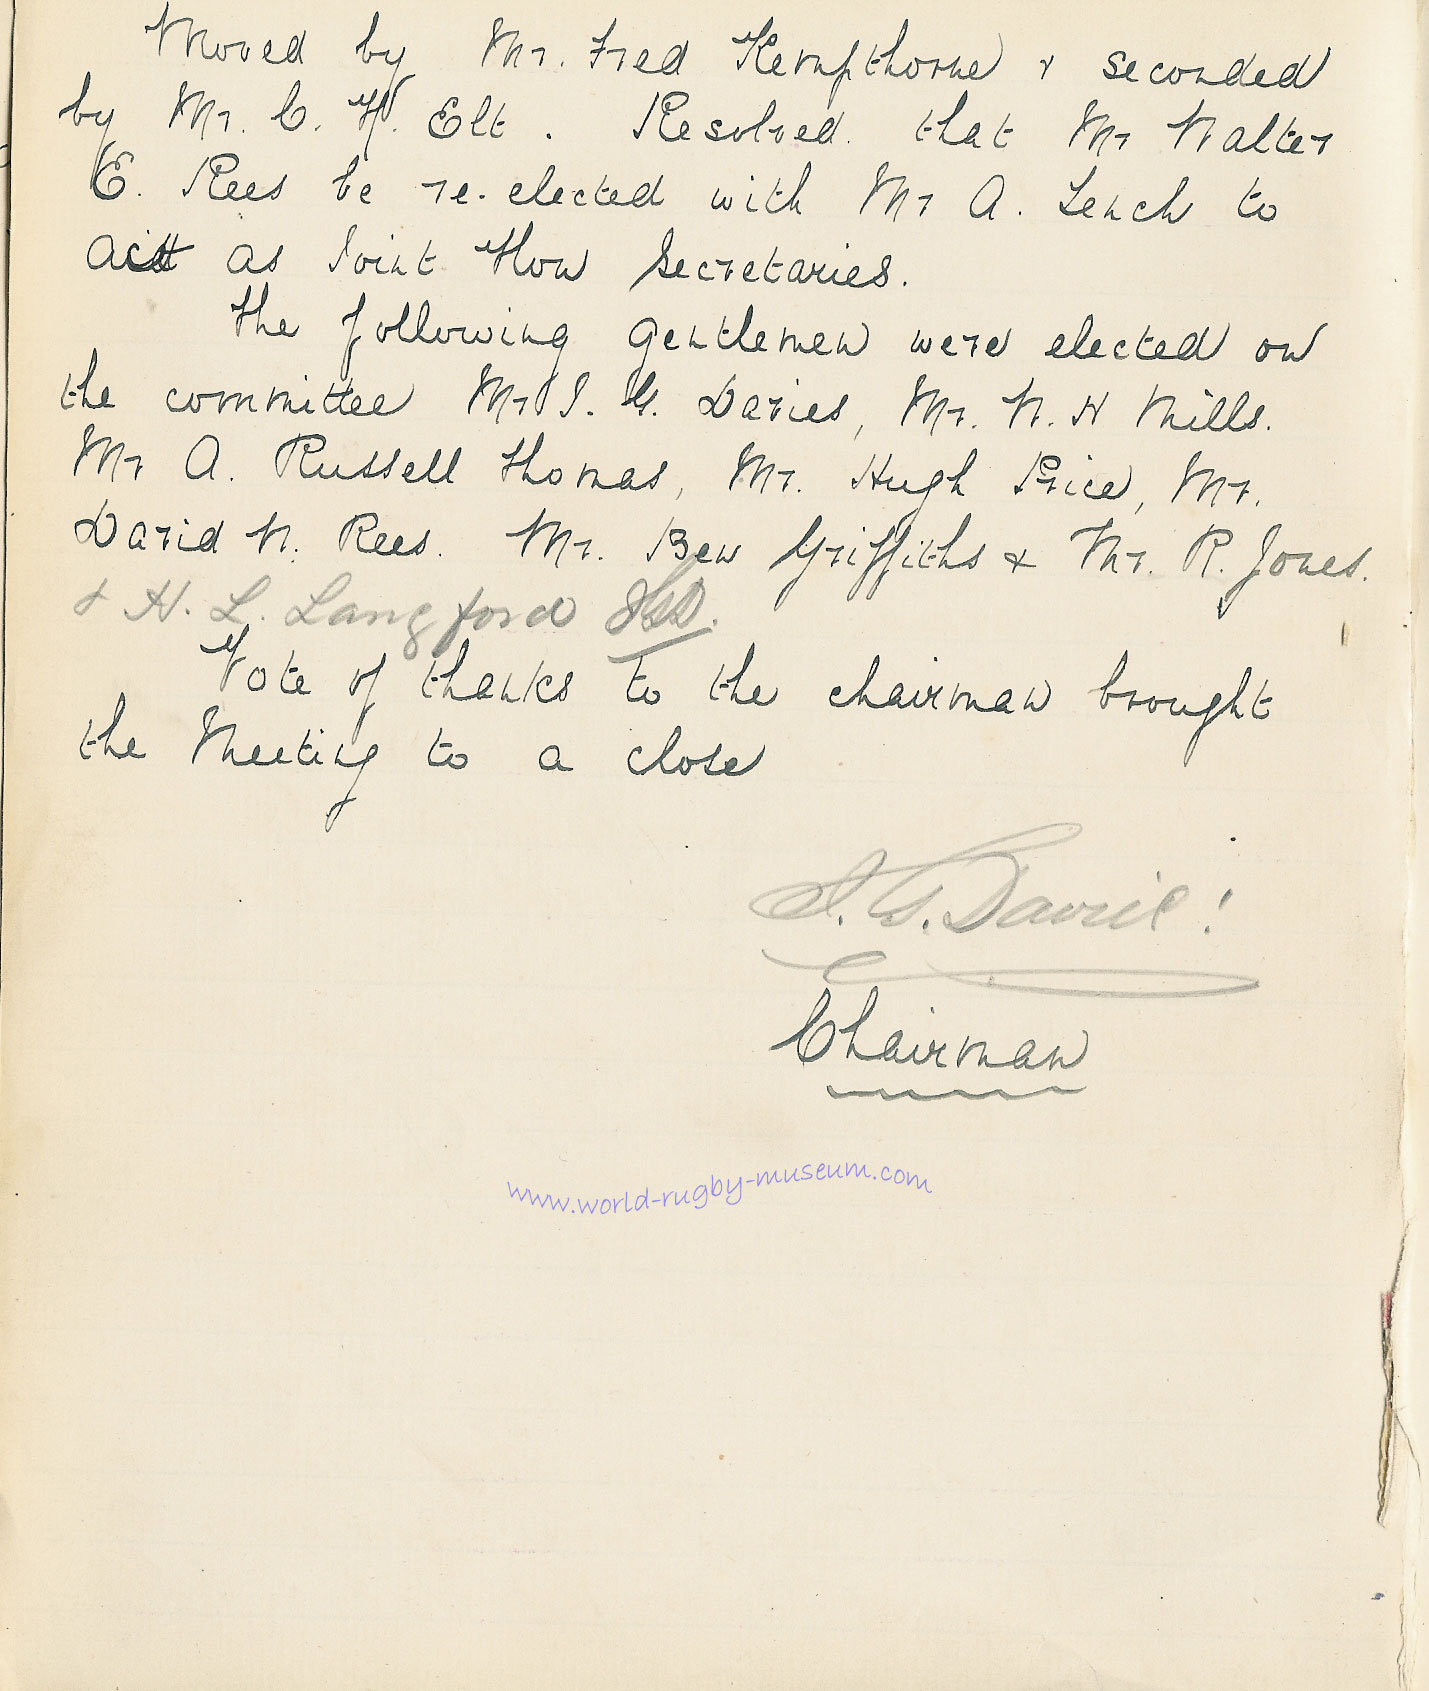 Moved by Mr. Fred Kempthorne & seconded
by Mr. C. H. Elt. Resolved that Mr Walter
E. Rees be re-elected with Mr A. Lench to
act as Joint Hon Secretaries.
The following gentlemen were elected on
the committee Mr I. G. Davies, Mr. W. H Mills.
Mr A. Russell Thomas, Mr. Hugh Price, Mr.
David W. Rees. Mr. Ben Griffiths & Mr. R. Jones.
& H. L. Langford
Vote of thanks to the chairman brought
the Meeting to a close
I. G. Davies
Chairman
www.world-rugby-museum.com